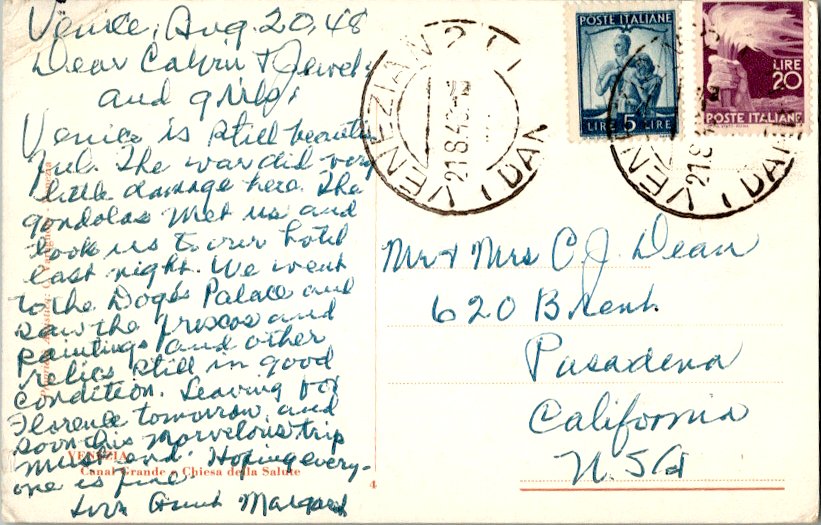 Venice, Aug. 20, 48
Dear Calvin & Jewel
and girls;
Venice is still beauti-
ful. The war did very
little damage here. The
gondolas met us and
took us to our hotel
last night. We went
to the Doges Palace and
saw the frescos and
paintings and other
relics still in good
condition. Leaving for
Florence tomorrow, and
soon this marvelous trip
must end. Hoping every-
one is fine.
Love Aunt Margaret
VENEZIA
Canal Grande e Chiesa della Salute
4
POSTE ITALIANE
LIRE 5 LIRE
LIRE
20
POSTE ITALIANE
VENEZIA
21.8.48
VENEZIA
21.8
Mr & Mrs C. J. Dean
620 Brent
Pasadena
California
U.S.A